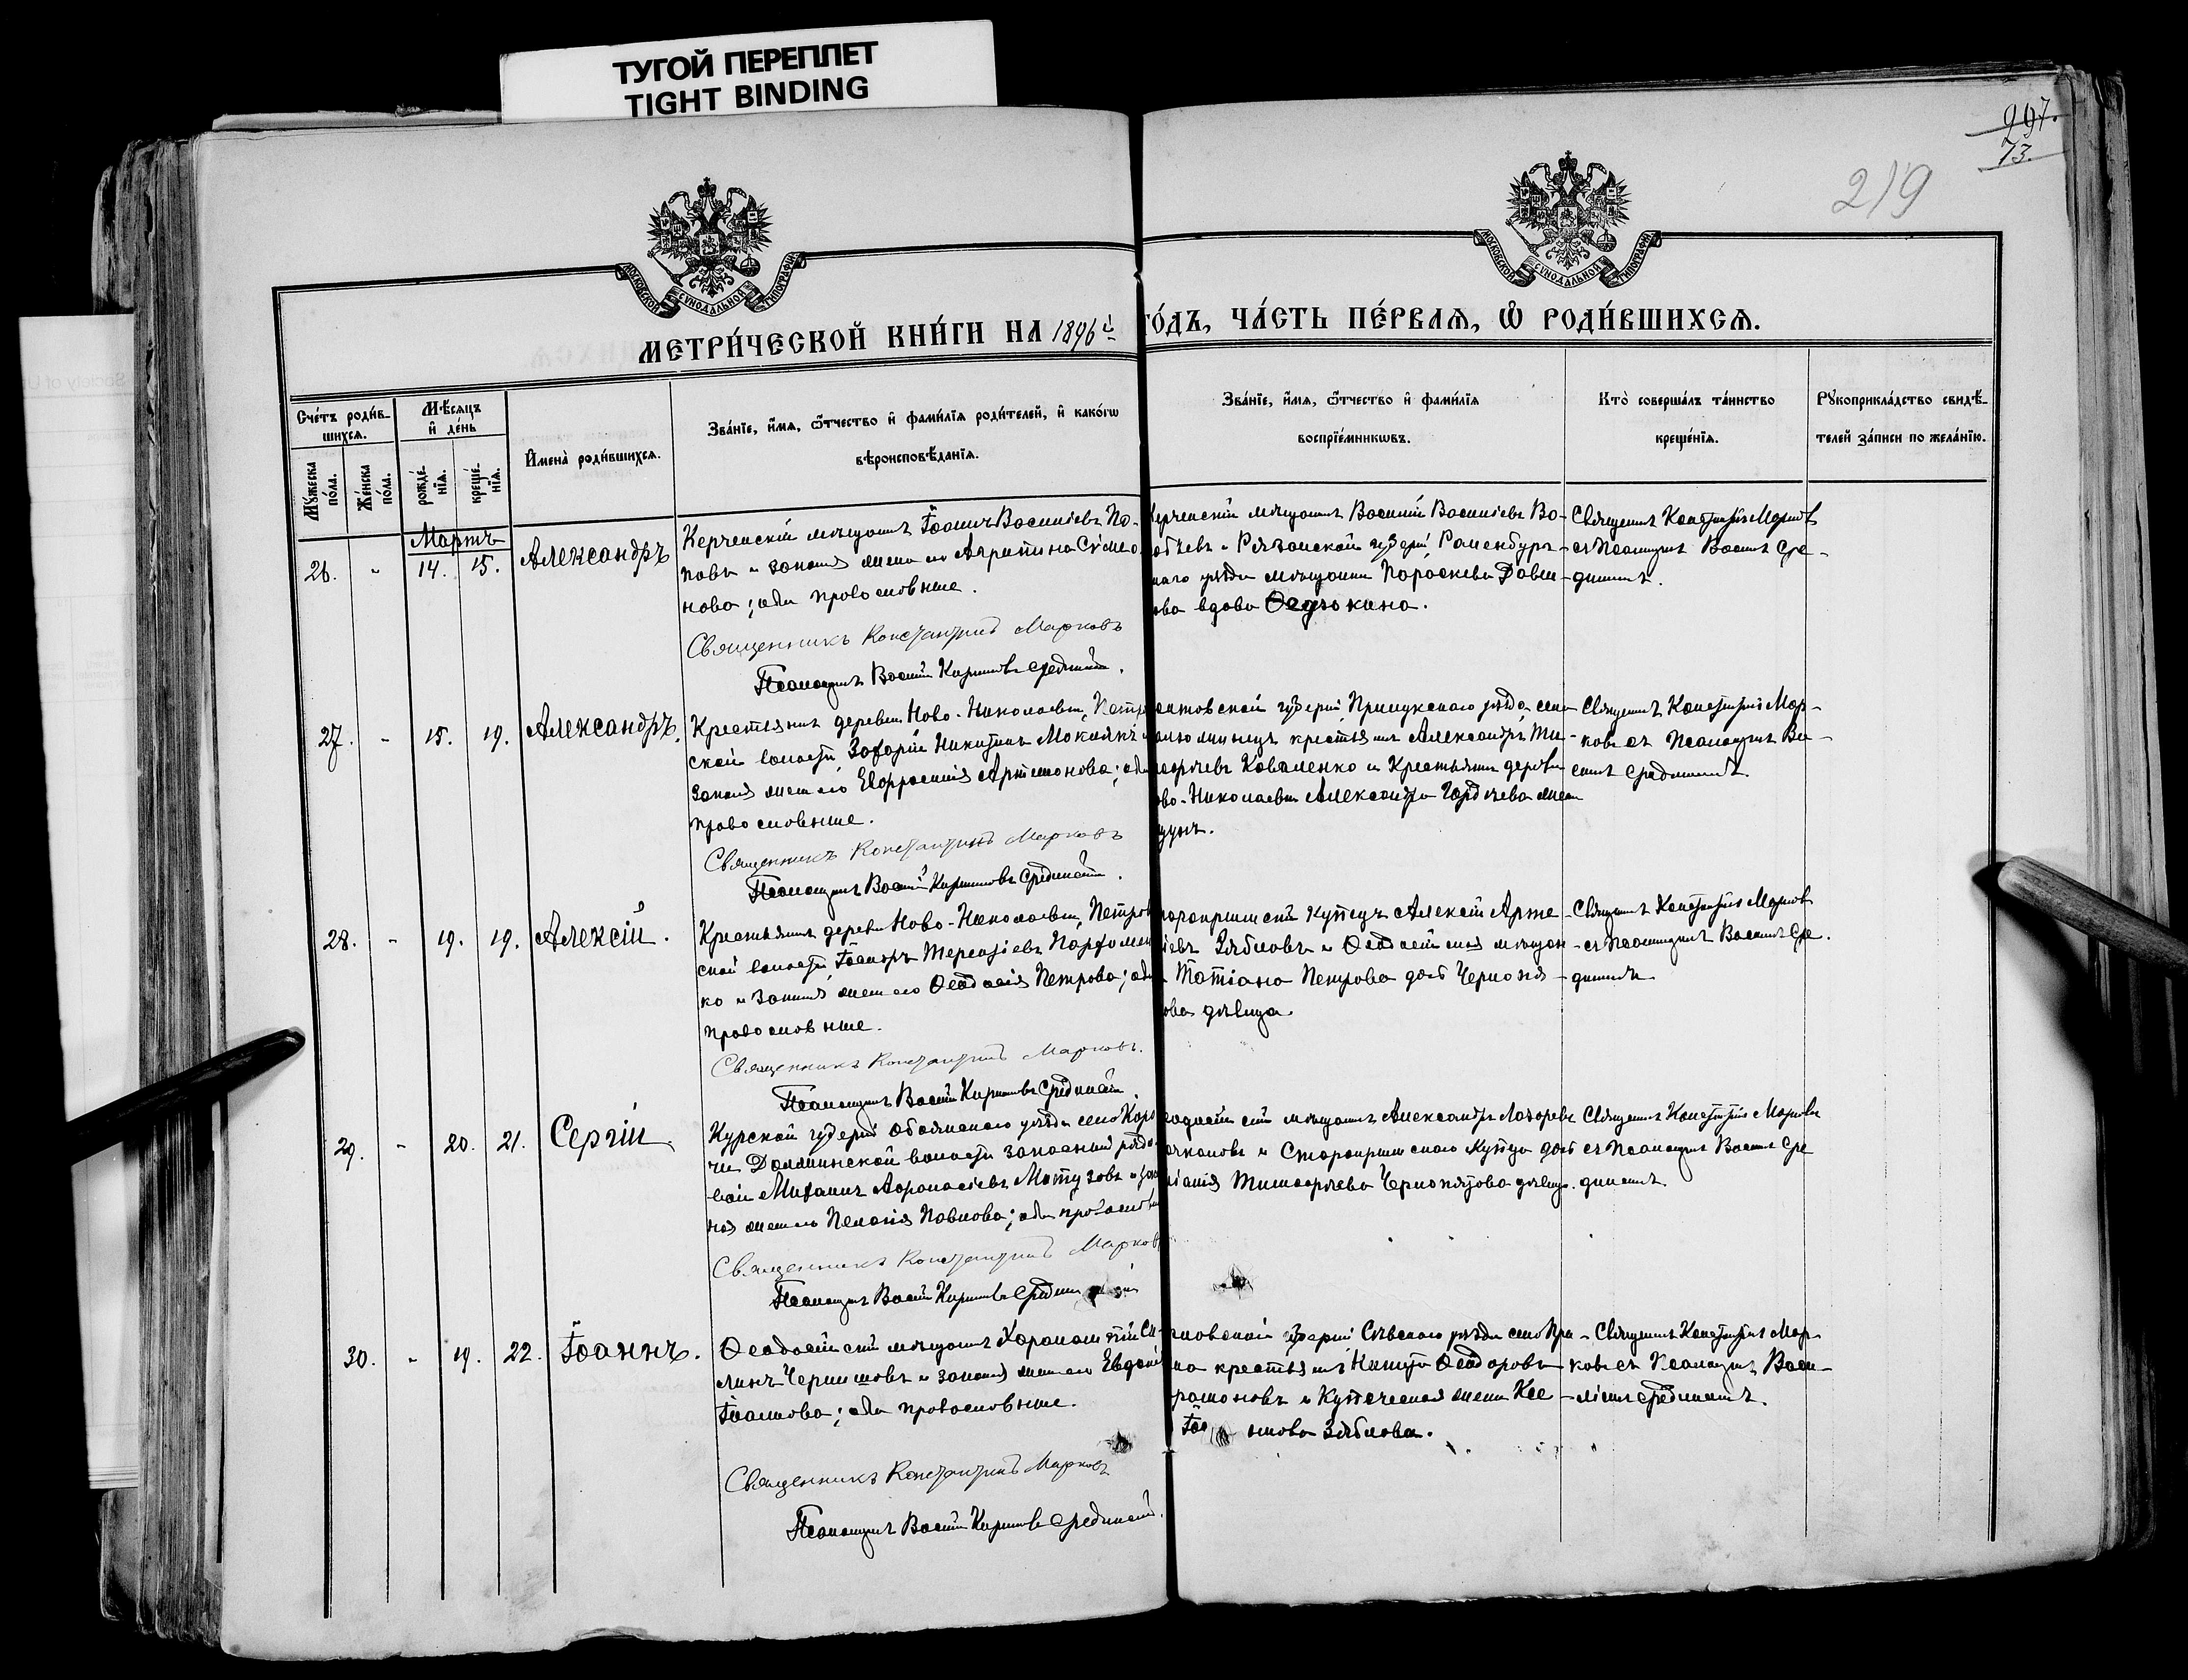 ТУГОЙ ПЕРЕПЛЕТ
TIGHT BINDING
997.
73.
219
МОСКОВСКОЙ СѴНОДАЛЬНОЙ ТИПОГРАФІИ
МОСКОВСКОЙ СѴНОДАЛЬНОЙ ТИПОГРАФІИ
МЕТРИ́ЧЕСКОЙ КНИ́ГИ НА 1896й
ГО́ДЪ, ЧА́СТЬ ПЕ́РВАѦ, Ѽ РОДИ́ВШИХСѦ.
Сче́тъ роди́в-
шихсѧ.
Мꙋ́жеска по́ла.
Же́нска по́ла.
Мѣ́сѧцъ и҆ де́нь
рожде́-нїѧ.
креще́-нїѧ.
И҆мена̀ роди́вшихсѧ.
Зва́нїе, и҆́мѧ, ѻ҆́тчество и҆ фами́лїѧ роди́телей, и҆ како́гѡ
вѣроисповѣ́данїѧ.
Зва́нїе, и҆́мѧ, ѻ҆́тчество и҆ фами́лїѧ
воспрїе́мникѡвъ.
Кто̀ соверша́лъ та́инство
креще́нїѧ.
Рꙋкоприкла́дство свидѣ́-
телей за́писи по жела́нїю.
Мартъ
26. - 14. 15. Александръ
Керченскій мѣщанинъ Іоаннъ Василіевъ По-
повъ и законная жена его Агрипина Симео-
нова; оба православные.
Священникъ Константинъ Марковъ
Псаломщикъ Василій Кирилловъ Срединскій.
Керченскій мѣщанинъ Василій Василіевъ Во-
робьевъ и Рязанской губерніи, Раненбург-
скаго уѣзда мѣщанка Параскева
вдова Ѳедюкина.
Священникъ Константинъ Марковъ
съ Псаломщикомъ Василіемъ Сре-
динскимъ.
27. - 15. 19. Александръ.
Крестьянинъ деревни Ново-Николаевки, Петров
ской волости Захарій Никитинъ
законная жена его Евфросинія Артемонова; оба
православные.
Священникъ Константинъ Марковъ
Псаломщикъ Василій Кирилловъ Срединскій.
Полтовской губерніи Прилукскаго уѣзда села
крестьянинъ Александръ Ти-
моѳеевъ Коваленко и Крестьянина деревни
Ново-Николаевки Александра Гордѣева жена
Священникъ Константинъ Мар-
ковъ съ Псаломщикомъ Ва-
силіемъ Срединскимъ.
28. - 19. 19. Алексій.
Крестьянинъ деревни Ново-Николаевки, Петров
ской волости Терентіевъ Парфомен
ко и законная жена его Ѳеодосія Петрова; оба
православные.
Священникъ Константинъ Марковъ.
Псаломщикъ Василій Кирилловъ Срединскій.
Старокрымскій купецъ Алексій Арте
Зябловъ и Ѳеодосійская мѣщан
Татіана Петрова дочь Черноп
ова дѣвица.
Священникъ Константинъ Марковъ
съ Псаломщикомъ Василіемъ Сре
динскимъ
29. - 20. 21. Сергій.
Курской губерніи Обоянскаго уѣзда село
волости запасный рядо-
вой Михаилъ Аѳанасіевъ Матузовъ и закон
ная жена его Пелагія Павлова; оба православные
Священникъ Константинъ Марковъ
Псаломщикъ Василій Кирилловъ Срединскій
Ѳеодосійскій мѣщанинъ Александръ Лазаревъ
и Старокрымскаго Купца дочь
Тимоѳеева дѣвица.
Священникъ Константинъ Марковъ
съ Псаломщикомъ Василіемъ Сре
динскимъ.
30. - 19. 22. Іоаннъ.
Ѳеодосійскій мѣщанинъ Харалампій
Чернышовъ и законная жена его Евдокія
Іоаннова; оба православные.
Священникъ Константинъ Марковъ
Псаломщикъ Василій Кирилловъ Срединскій.
Орловской губерніи Сѣвскаго уѣзда село
крестьянинъ Никита Ѳеодоровъ
и Купеческая жена Ксе
Зяблова.
Священникъ Константинъ Мар-
ковъ съ Псаломщикомъ Васи-
ліемъ Срединскимъ.